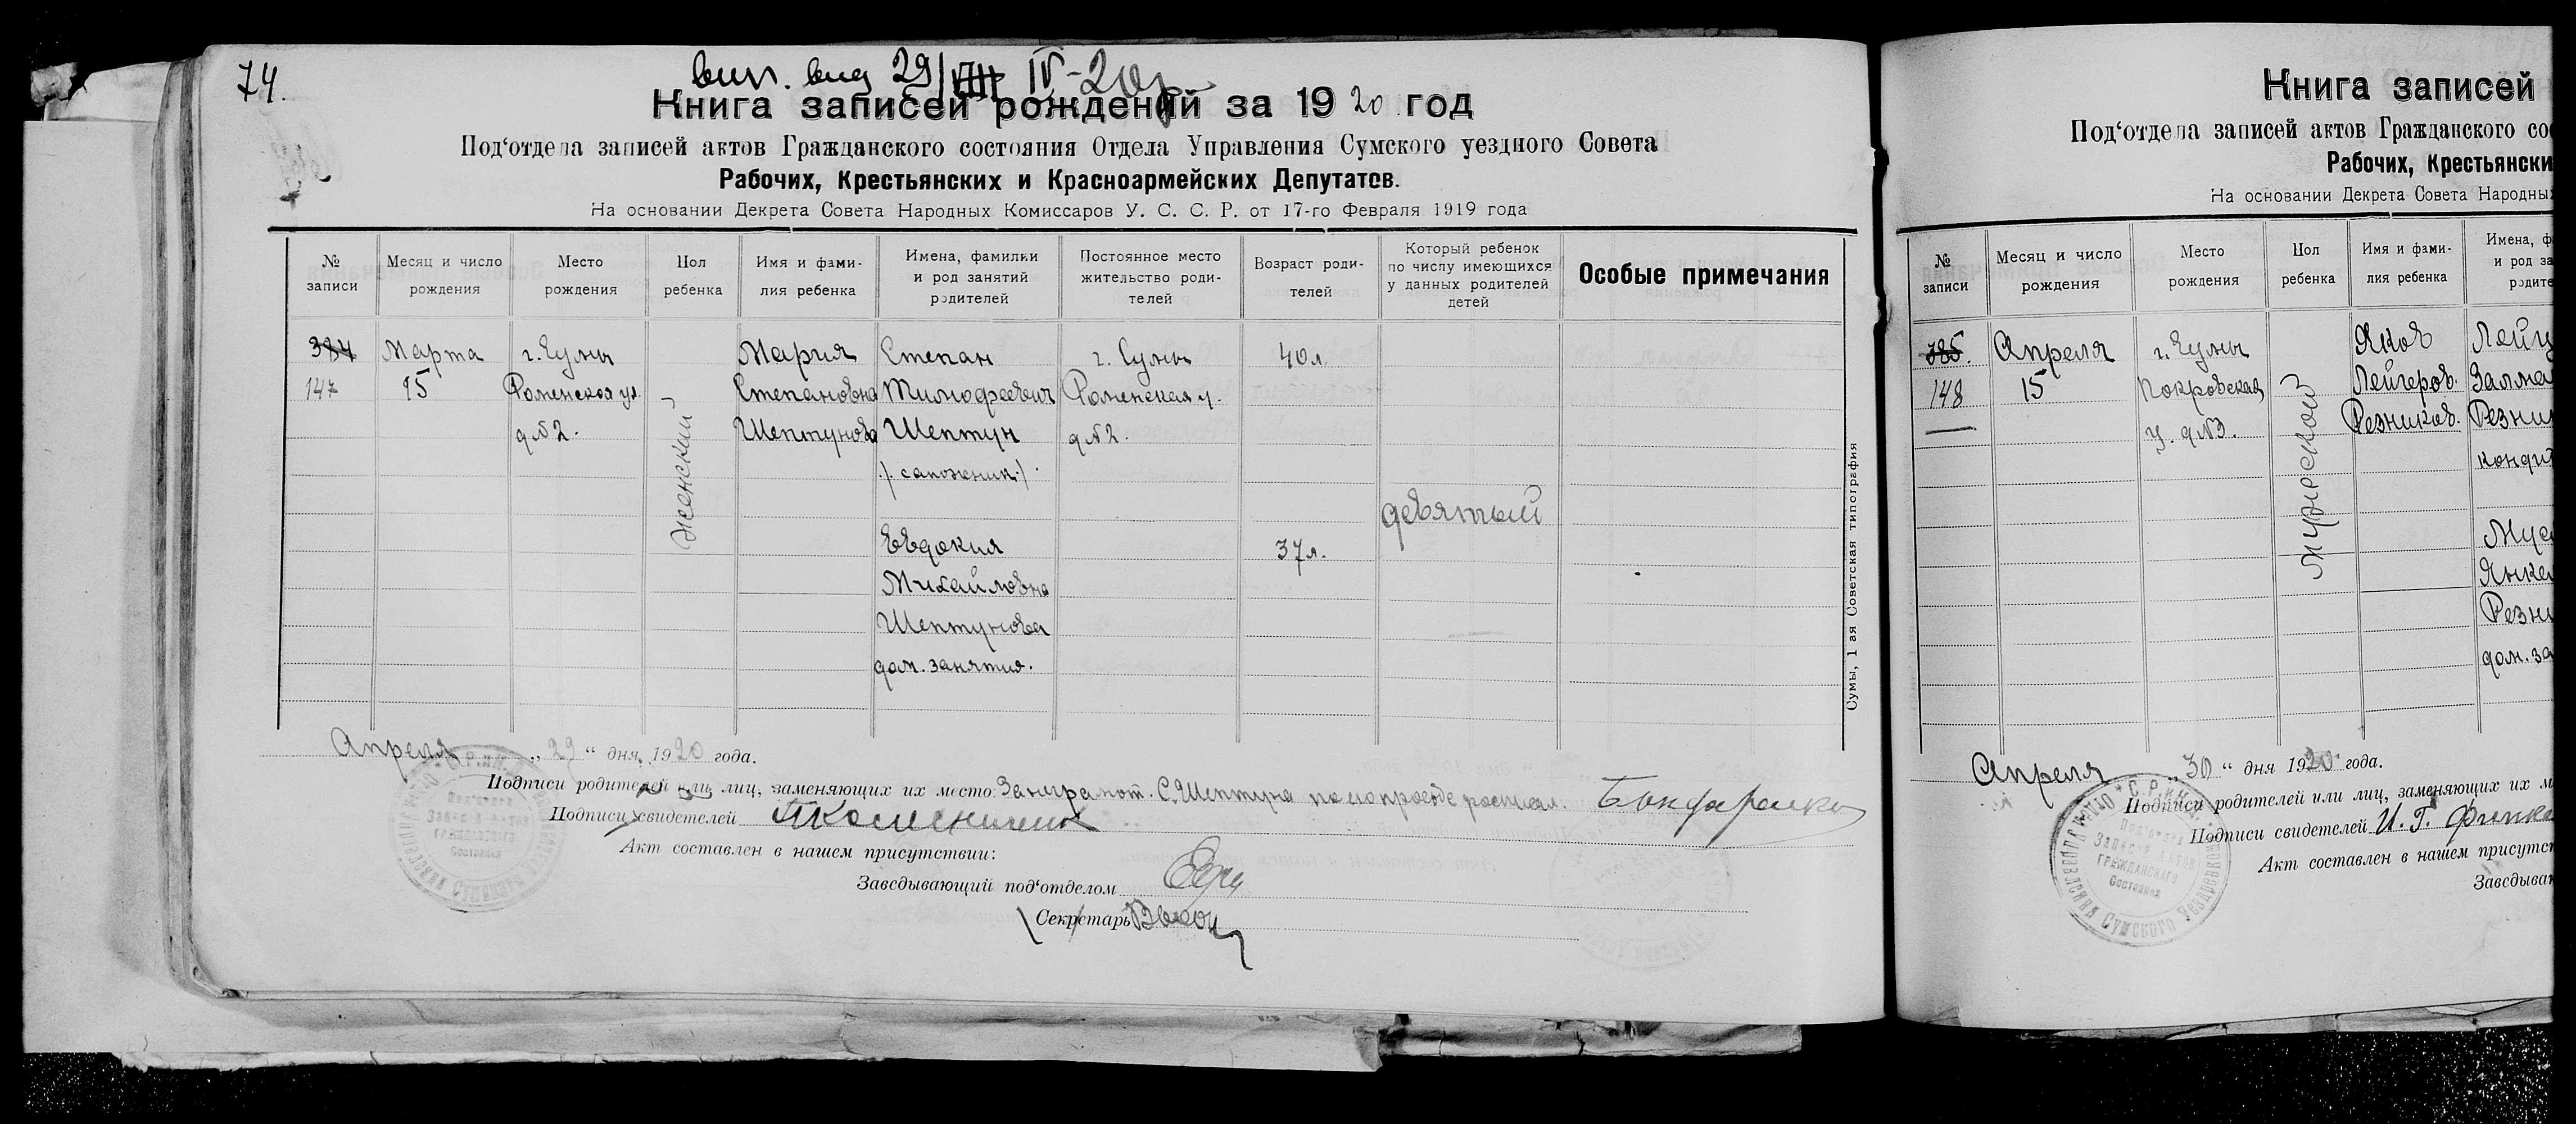 74.
вип. вид 29/VIII IV-20г
Книга записей рождений за 1920 год
Под‘отдела записей актов Гражданского состояния Отдела Управления Сумского уездного Совета
Рабочих, Крестьянских и Красноармейских Депутатов.
На основании Декрета Совета Народных Комиссаров У. С. С. Р. от 17-го Февраля 1919 года
№ записи
Месяц и число рождения
Место рождения
Пол ребенка
Имя и фами-
лия ребенка
Имена, фамилии и род занятий родителей
Постоянное место жительство роди-
телей
Возраст роди-
телей
Который ребенок по числу имеющихся у данных родителей детей
Особые примечания
384 Марта г. Сумы Мария Степан г. Сумы 40 л.
147 15 Роменская ул. Степановна Тимофеевич Роменская у.
д №2. Шептунова Шептун д №2.
женский
/. сапожник./
девятый
Евдокия 37 л.
Михайловна
Шептунова
дом. занятия.
Сумы, 1 ая Советская типография
Апреля „29“ дня, 1920 года.
Подписи родителей или лиц, заменяющих их место: За неграмот. С. Шептуна по его просьбе расписал. Бондаренко
Подписи свидетелей
Акт составлен в нашем присутствии:
Заведывающий под‘отделом
Секретарь
Книга записей
Под‘отдела записей актов Гражданского со
Рабочих, Крестьянски
На основании Декрета Совета Народны
№ записи
Месяц и число рождения
Место рождения
Пол ребенка
Имя и фами-
лия ребенка
Имена, ф
и род за
родите
385. Апреля г. Сумы Яков Лейз
148 15 Покровская Лейзеров. Залма
у. д №3. Резников. Резни
мужской
кондит
Мус
Янке
Резн
дом. за
Апреля „30“ дня 1920 года.
Подписи родителей или лиц, заменяющих их м
Подписи свидетелей И. Г. Финке
Акт составлен в нашем присутст
Заведыва
Под‘отдел
Записи Актов
Гражданского
Состояния